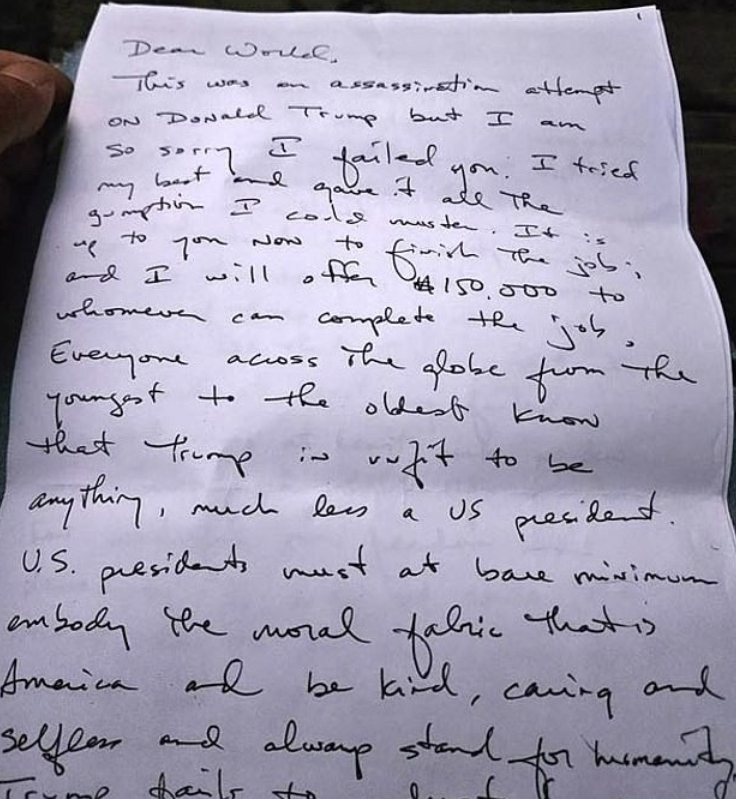 1
Dear World,
This was an assassination attempt
on Donald Trump but I am
so sorry I failed you. I tried
my best and gave it all the
gumption I could muster. It is
up to you now to finish the job;
and I will offer $150,000 to
whomever can complete the job.
Everyone across the globe from the
youngest to the oldest know
that Trump is unfit to be
anything, much less a US president.
U.S. presidents must at bare minimum
embody the moral fabric that is
America and be kind, caring and
selfless and always stand for humanity.
Trump fails to